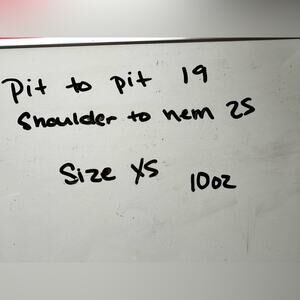 Pit to pit 19
Shoulder to hem 25
Size XS
10oz